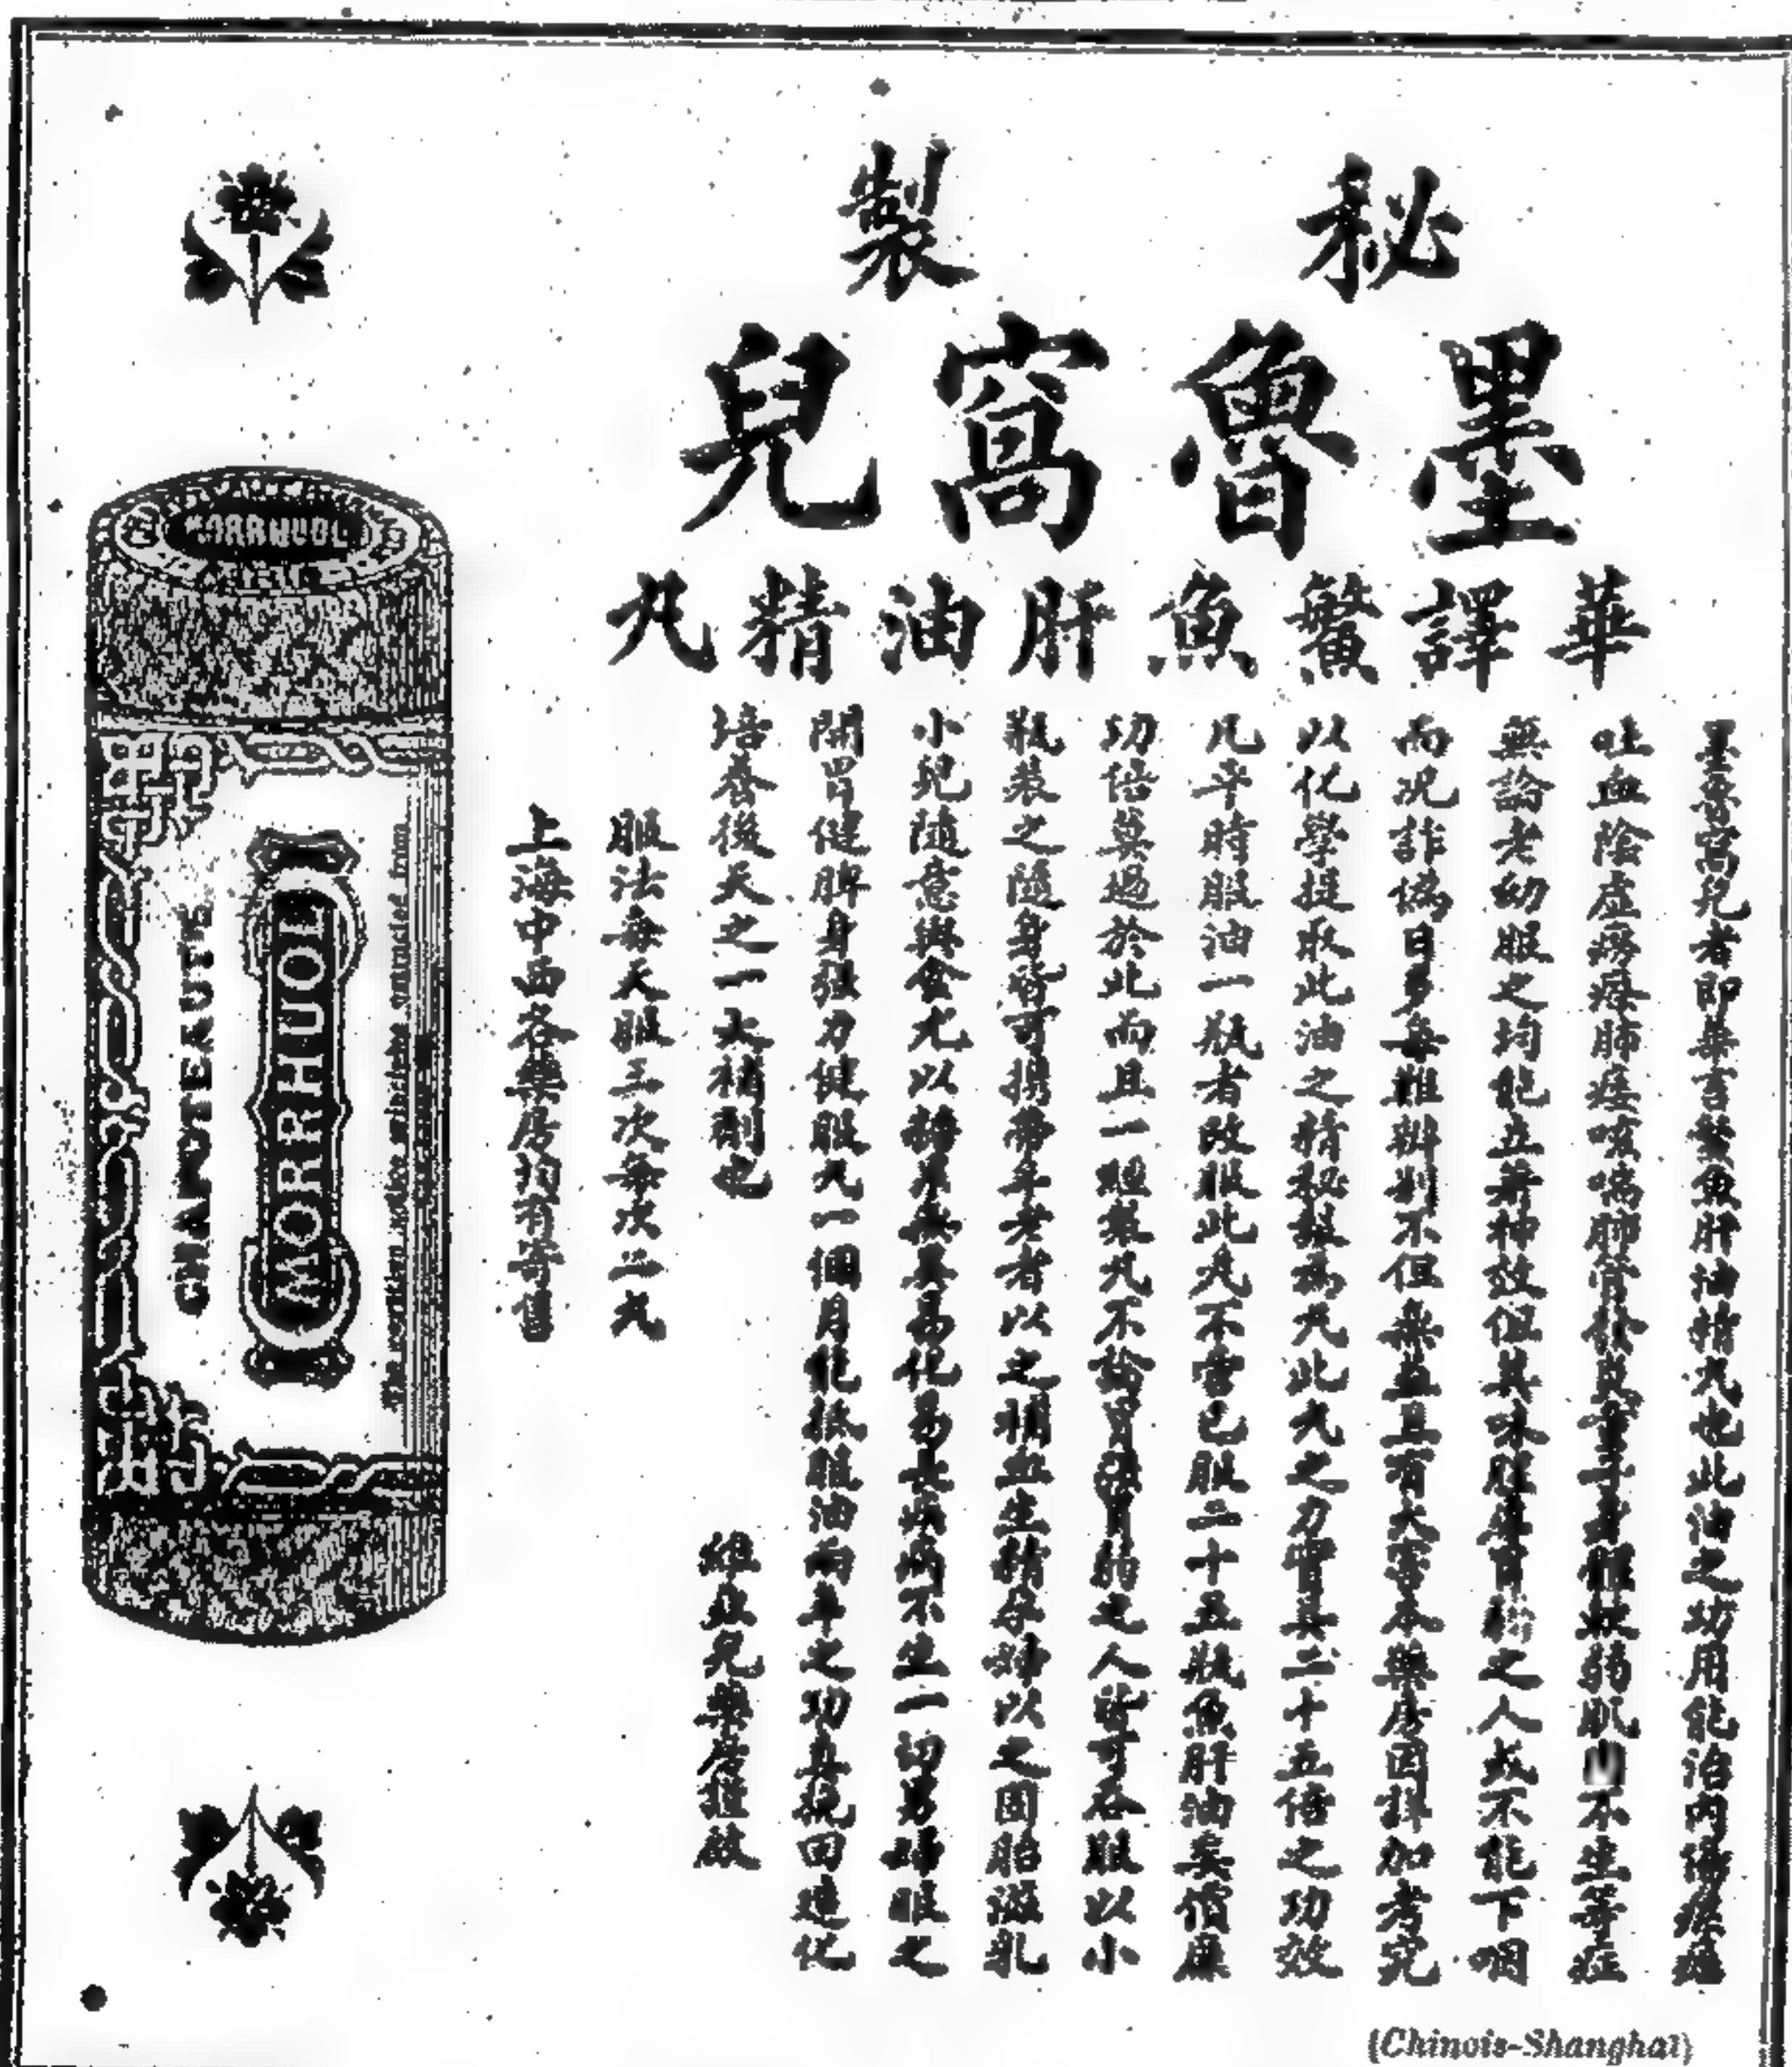 秘製
墨魯窩兒
華譯鱉魚肝油精丸
墨魯窩兒者即華言鱉魚肝油精丸也此油之功用能治內傷痰
吐血陰虛癆瘵肺痿咳嗆肺管身體軟弱肌肉不生等症
無論老幼服之均能立奏神效但其味腥膩胃弱之人或不能下咽
而况詐偽日多每難辨別不但無益且有大害本藥房因詳加考究
以化學提取此油之精秘製為丸此丸之力實具二十五倍之功效
凡平時服油一瓶者改服此丸不啻已服二十五瓶魚肝油矣價廉
功倍莫過於此而且一經製丸不論胃強胃弱之人皆可吞服以小
瓶裝之隨身皆可携帶年老者以之補血生精孕婦以之固胎滋乳
小兒隨意與食尤以無其易化易長病不生一切男婦服之
開胃健脾身強力健服丸一個月能抵服油兩年之功真挽回造化
培養後天之一大補劑也
藥房謹啟
服法每天服三次每次二丸
上海中西各藥房均有寄售
MORRHUOL
CHAPOTEAUT
MORRHUOL
(Chinois-Shanghaï)